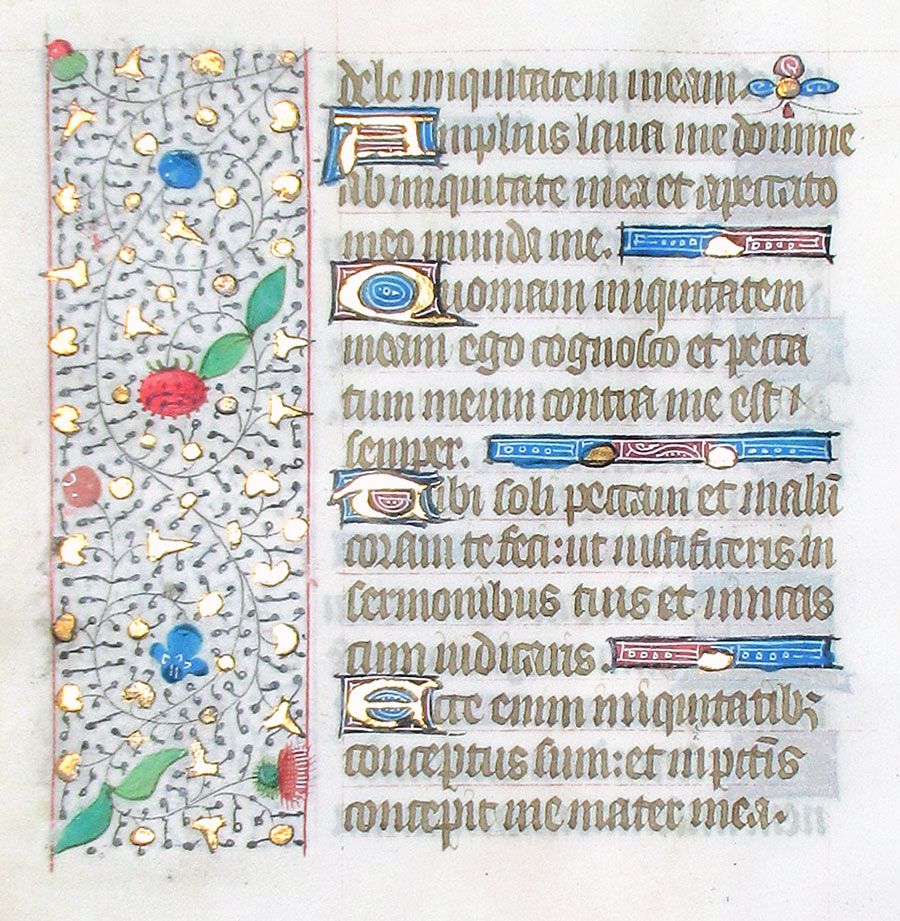 dele iniquitatem meam.
Amplius laua me domine
ab iniquitate mea et a peccato
meo munda me.
Quoniam iniquitatem
meam ego cognosco et pecca
tum meum contra me est
semper.
Tibi soli peccaui et malū
coram te feci: ut iustificeris in
sermonibus tuis et uincas
cum iudicaris.
Ecce enim iniquitatibꝫ
conceptus sum: et in pctīs
concepit me mater mea.